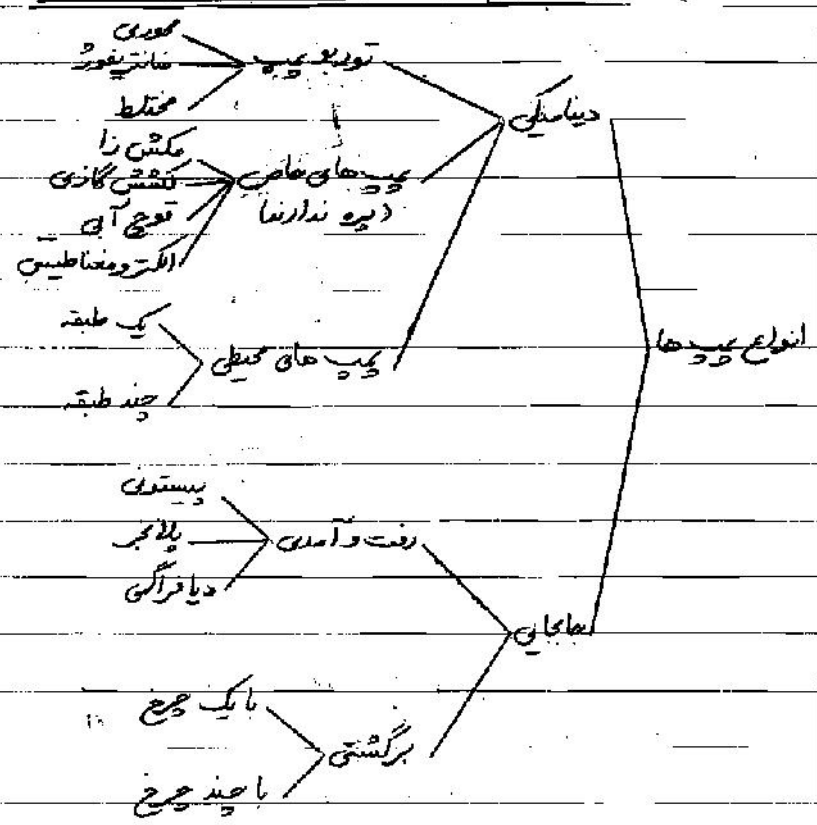 انواع پمپ ها
دینامیکی
توربو پمپ
محوری
سانتریفوژ
مختلط
پمپ های خاص
(پره ندارند)
مکش زا
کشش گازی
قوچ آبی
الکترومغناطیسی
پمپ های محیطی
یک طبقه
چند طبقه
جابجایی
رفت و آمدی
پیستونی
پلانجر
دیافراگمی
برگشتی
با یک چرخ
با چند چرخ